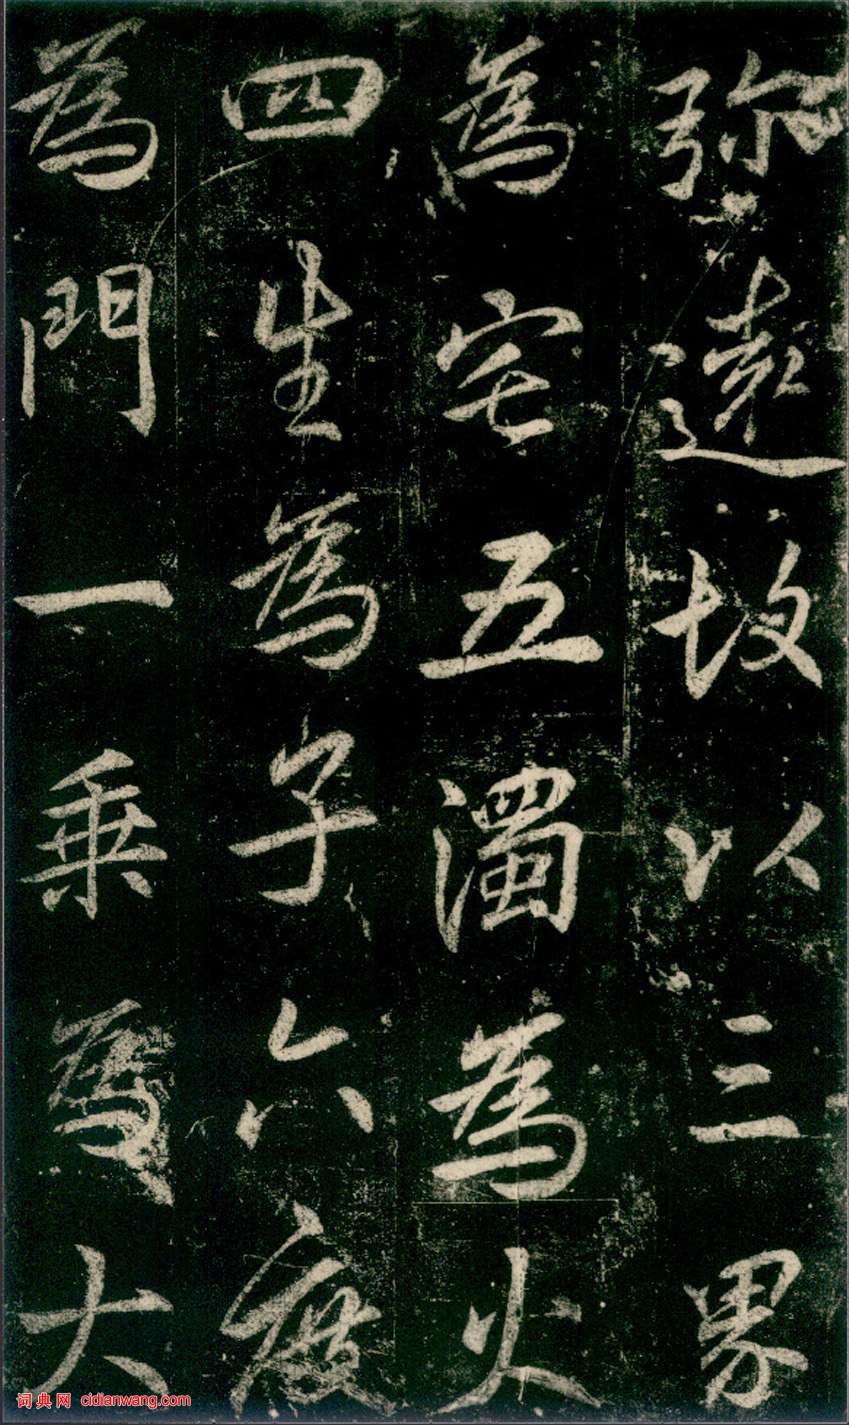 弥遠故以三界
為宅五濁為火
四生為子六度
為門一乗為大
词典网 cidianwang.com